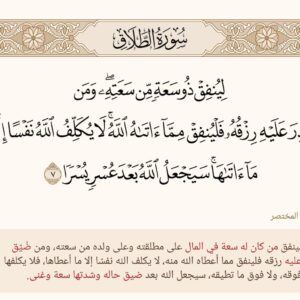 سُورَةُ الطَّلَاقِ
لِيُنفِقْ ذُو سَعَةٍ مِّن سَعَتِهِۦ ۖ وَمَن
دِرَ عَلَيْهِ رِزْقُهُۥ فَلْيُنفِقْ مِمَّآ ءَاتَىٰهُ ٱللَّهُ ۚ لَا يُكَلِّفُ ٱللَّهُ نَفْسًا إِ
مَآ ءَاتَىٰهَا ۚ سَيَجْعَلُ ٱللَّهُ بَعْدَ عُسْرٍ يُسْرًا ٧
المختصر
ينفق من كان له سعة في المال على مطلقته وعلى ولده من سعته، ومن ضُيّق
عليه رزقه فلينفق مما أعطاه الله منه، لا يكلف الله نفسًا إلا ما أعطاها، فلا يكلفها
فوقه، ولا فوق ما تطيقه، سيجعل الله بعد ضيق حاله وشدتها سعة وغنى.